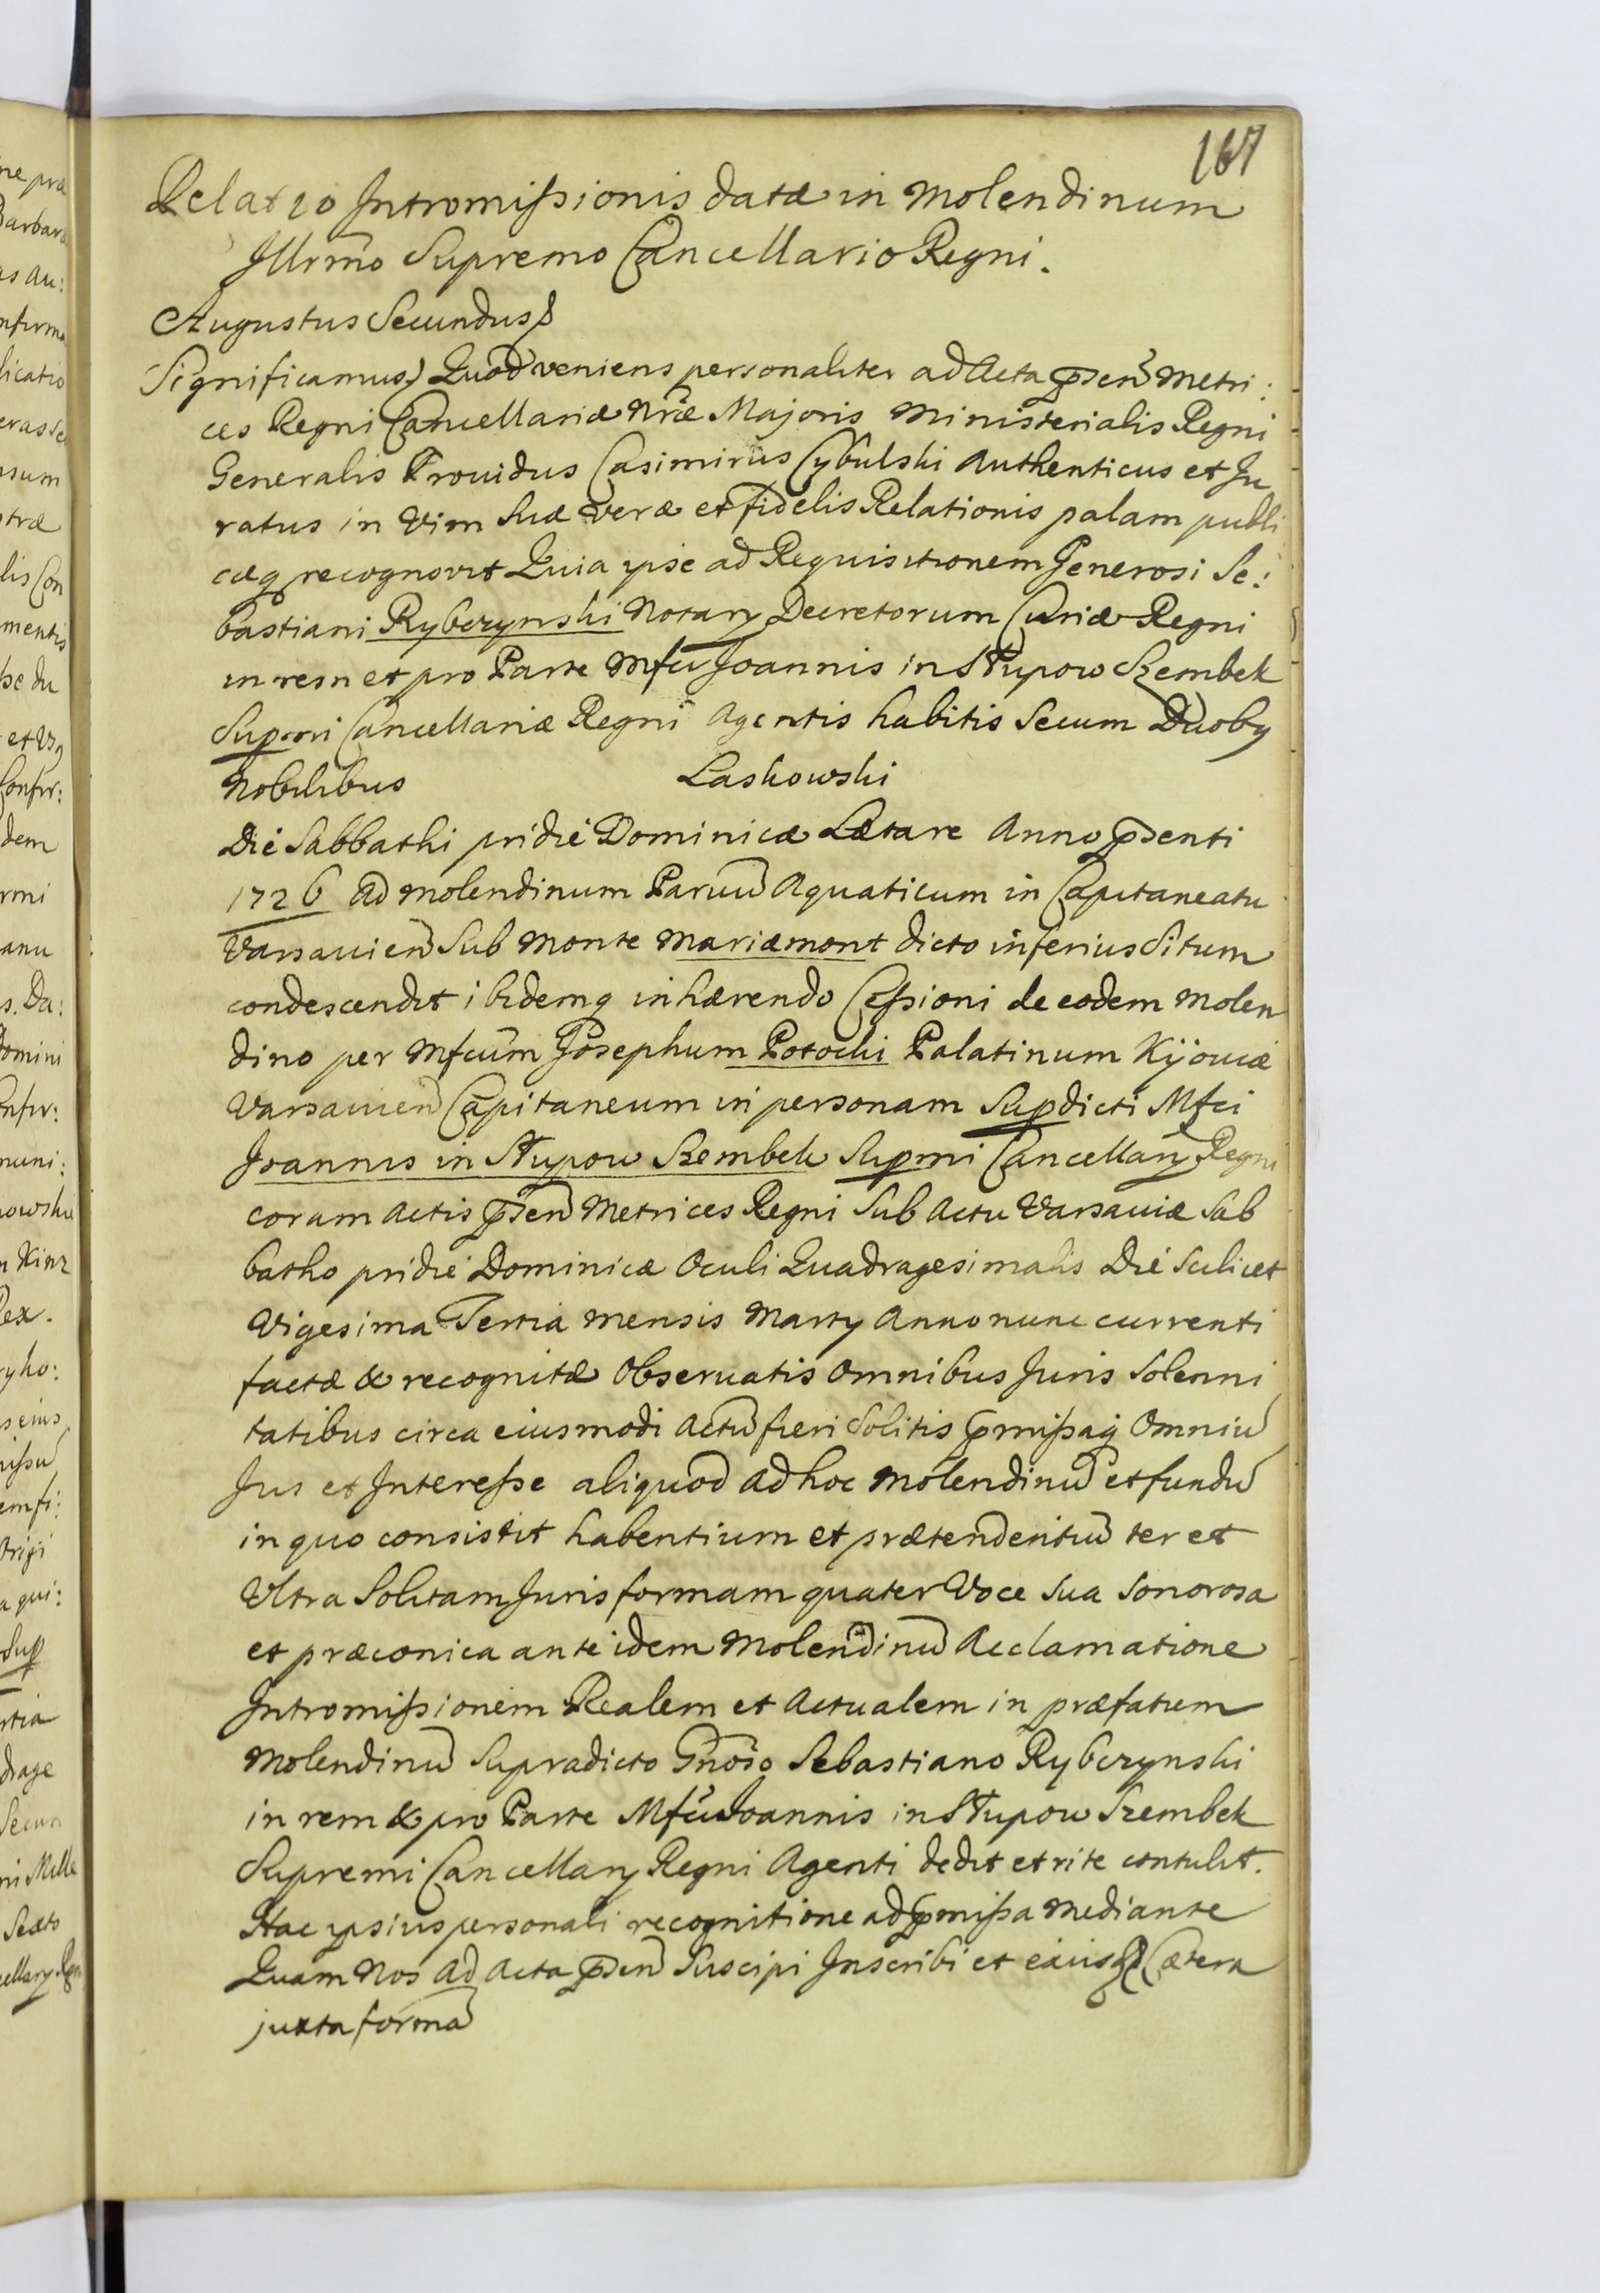 167
Relatio Intromissionis datæ in Molendinum
Jllrmo Supremo Cancellario Regni.
Augustus Secundus
Significamus Quod veniens personaliter ad Acta pñsen Metri:
ces Regni Cancellariæ Nræ Majoris Ministerialis Regni
Generalis Prouidus Casimirus Cybulski Authenticus et Ju
ratus in Vim Suæ Veræ et fidelis Relationis palam publi
cæq recognovit Quia ipse ad Requisitionem Generosi Se:
bastiani Rybczynski Notary Decretorum Curiæ Regni
in rem et pro Parte Mfci Joannis in Słupow Szembek
Supmi Cancellariæ Regni Agentis habitis Secum Duobq
Nobilibus Laskowski
Die Sabbathi pridie Dominicæ Lætare Anno psenti
1726 ad Molendinum Parvũ Aquaticum in Capitaneatu
Varsavien Sub Monte Mariæmont dicto inferius Situm
condescendit ibidemq inhærendo Cessioni de eodem Molen
dino per Mfcum Josephum Potocki Palatinum Kijoviæ
Varsavien Capitaneum in personam Supdicti Mfci
Joannis in Słupow Szembek Supmi Cancellary Regni
coram Actis psen Metrices Regni Sub Actu Varsaviæ Sab
batho pridie Dominicæ Oculi Quadragesimalis Die Scilicet
Vigesima Tertia Mensis Marty Anno nunc currenti
factæ & recognitæ Observatis Omnibus Juris Solenni
tatibus circa eiusmodi Actũ fieri Solitis pmissaq Omniũ
Jus et Interesse aliquod ad hoc Molendinũ et fundũ
in quo consistit habentium et prætendentiũ ter et
Ultra Solitam Juris formam quater Voce Sua Sonorosa
et præconica ante idem Molendinũ Acclamatione
Intromissionem Realem et Actualem in præfatum
Molendinũ Supradicto Gnoso Sebastiano Rybczynski
in rem & pro Parte Mfci Joannis in Słupow Szembek
Supremi Cancellary Regni Agenti dedit et rite contulit.
Hac ipsius personali recognitione ad pmissa mediante
Quam Nos ad Acta psen Suscipi Inscribi et eius Cætera
juxta formã